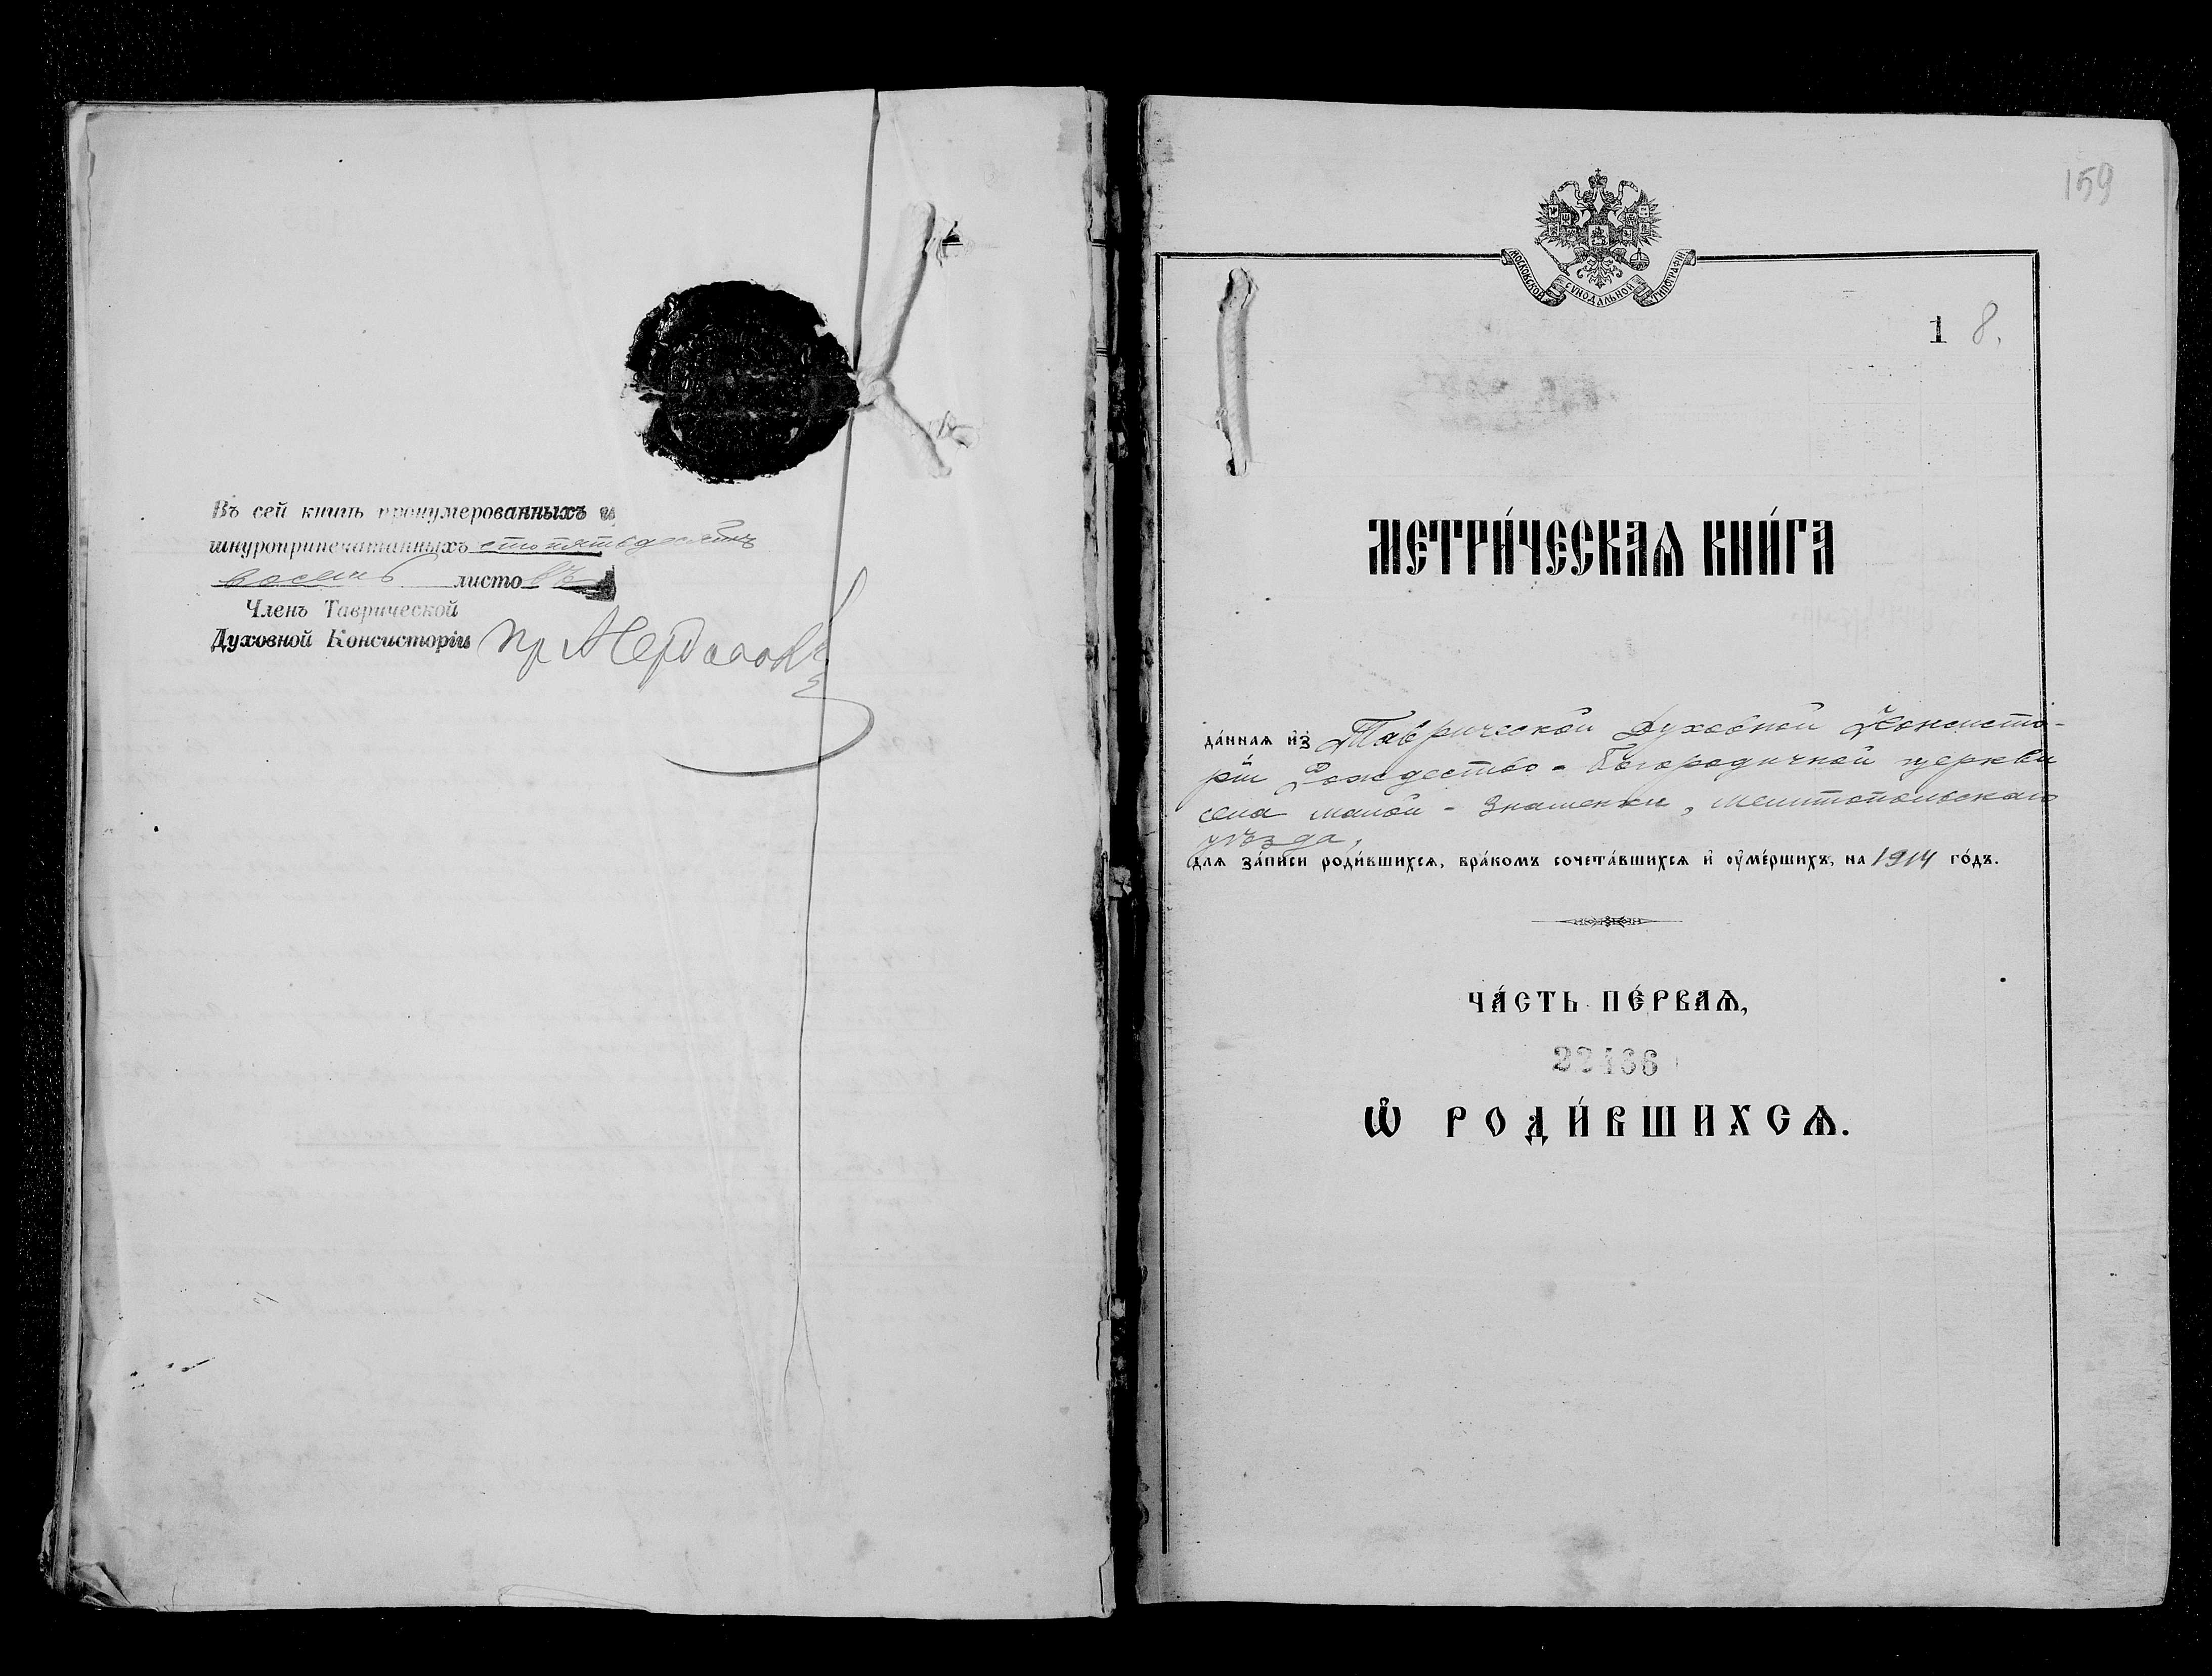 Въ сей книгѣ пронумерованныхъ и
шнуроприпечатанныхъ сто пятьдесятъ
восемь листовъ
Членъ Таврической
Духовной Консисторіи
159
МОСКОВСКОЙ СѴНОДАЛЬНОЙ ТИПОГРАФІИ
1 8.
МЕТРИ́ЧЕСКАѦ КНИ́ГА
да́ннаѧ из̾ Таврической Духовной Консисто-
ріи Рождество-Богородичной церкви
села Малой-Знаменки, Мелитопольскаго
уѣзда,
длѧ за́писи роди́вшихсѧ, бра́комъ сочета́вшихсѧ и҆ ᲂу҆ме́ршихъ, на 1914 го́дъ.
ЧА́СТЬ ПЕ́РВАѦ,
22136
Ѽ РОДИ́ВШИХСѦ.